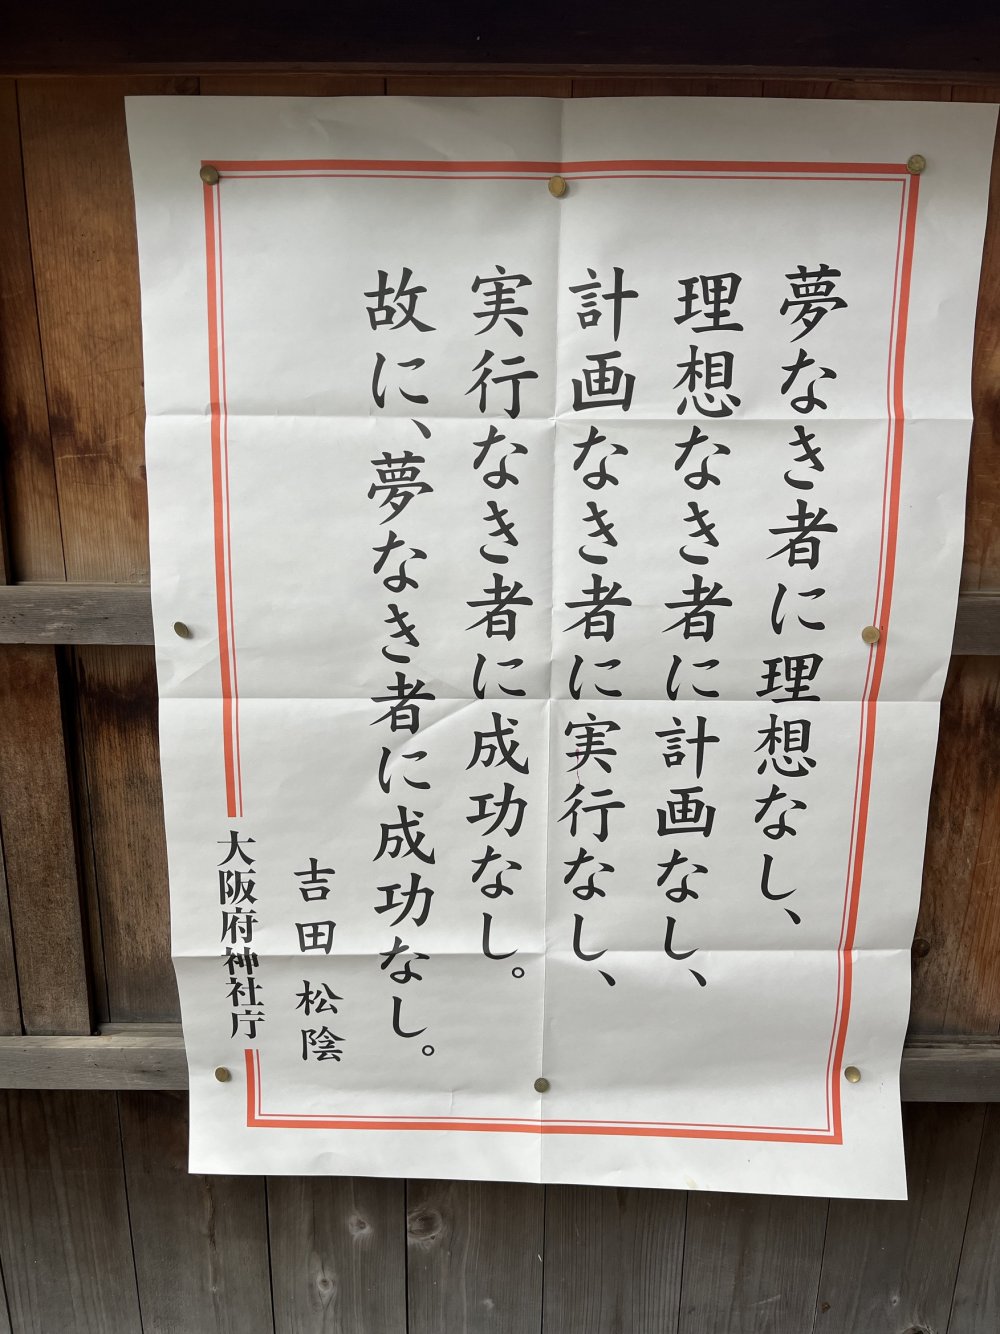 夢なき者に理想なし、
理想なき者に計画なし、
計画なき者に実行なし、
実行なき者に成功なし。
故に、夢なき者に成功なし。
吉田松陰
大阪府神社庁